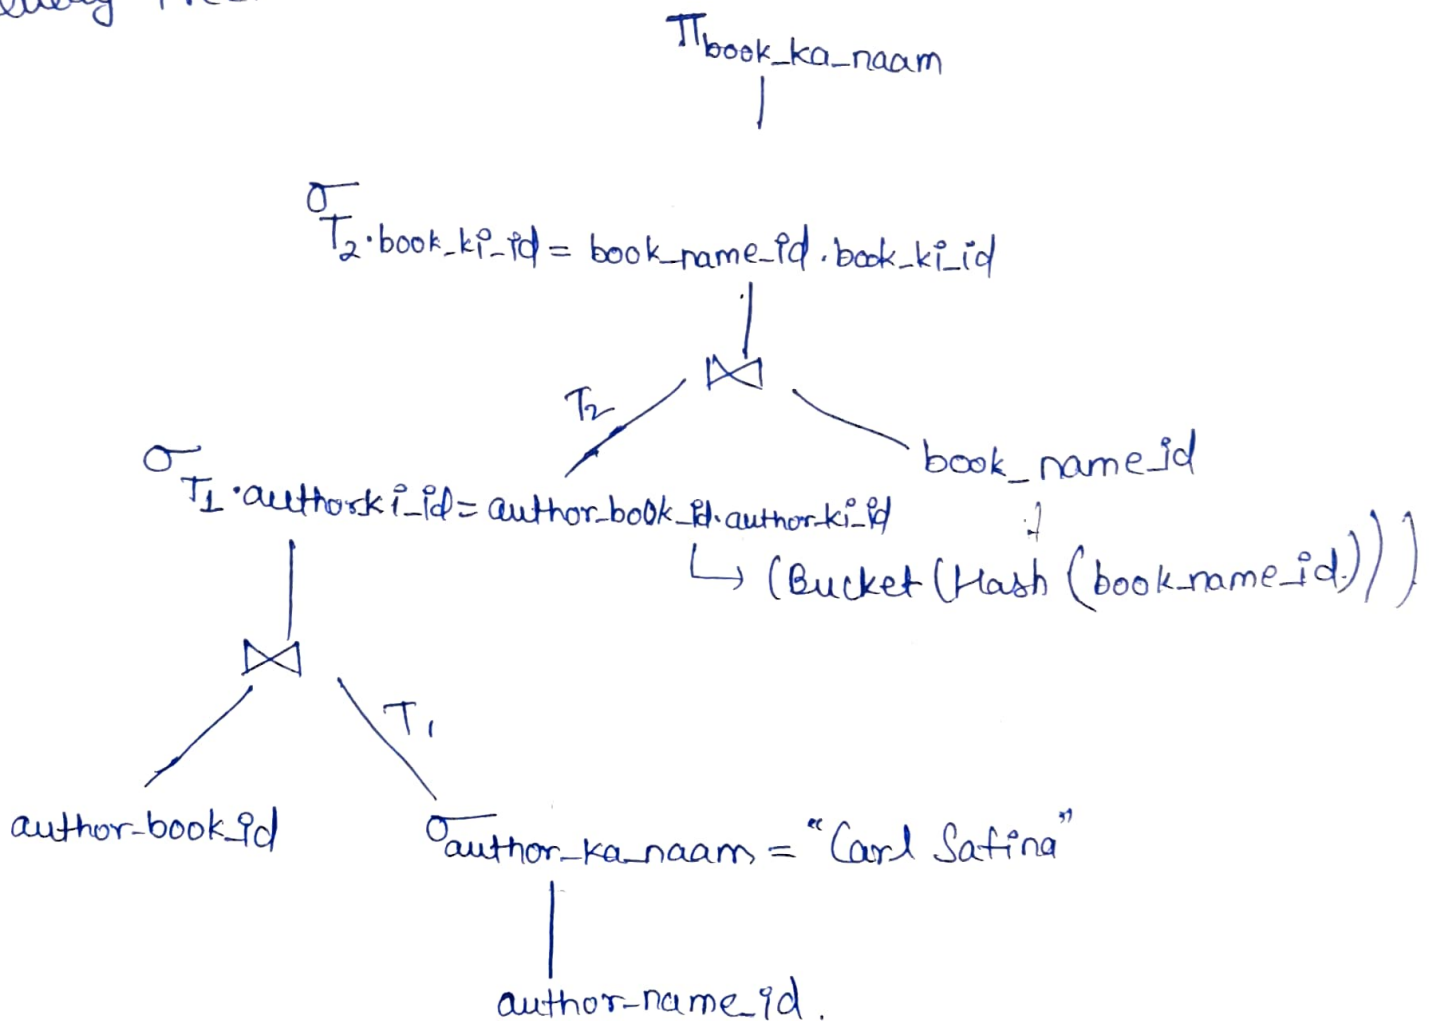 π book_ka_naam
σ T2.book_ki_id = book_name_id.book_ki_id
⋈
T2
book_name_id
σ T1.authorki_id = author_book_id.author_ki_id
↳ (Bucket (Hash (book_name_id)))
⋈
T1
author_book_id
σ author_ka_naam = "Carl Safina"
author_name_id.